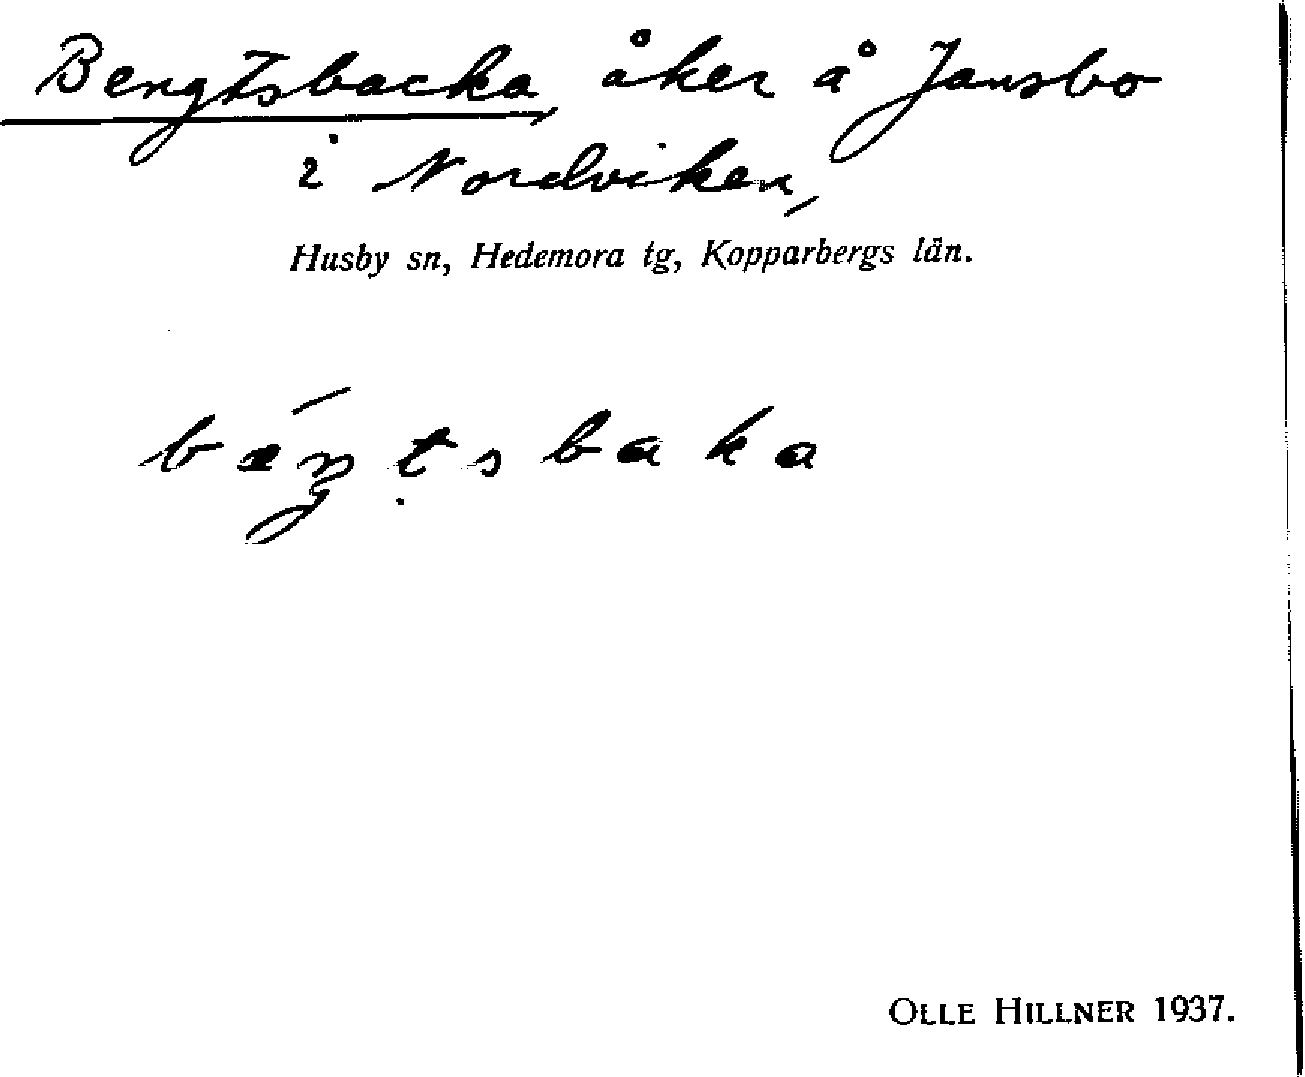 Bengtsbacka, åker å Jansbo
i Nordviken,
Husby sn, Hedemora tg, Kopparbergs län.
bǽŋṭsbaka
OLLE HILLNER 1937.